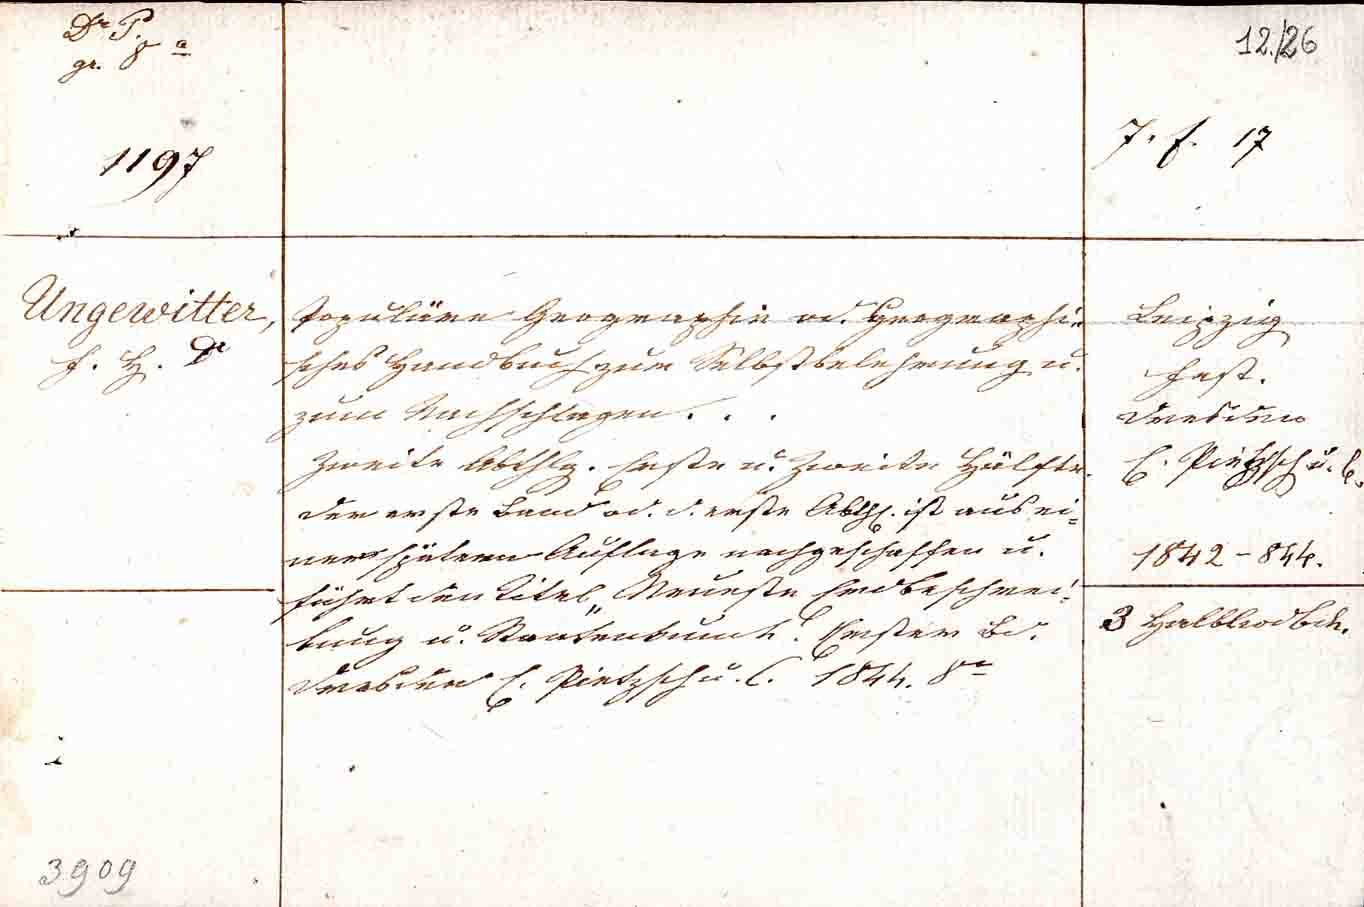 Dr P.
gr. 8º
1197
12./26
7. f. 17
Ungewitter,
F. H. Dr
Populäre Geographie od. Geographi-
sches Handbuch zur Selbstbelehrung u.
zum Nachschlagen . . .
Zweite Abthlg. Erste u. Zweite Hälfte.
Der erste Band od. d. erste Abthl. ist aus ei-
ner spätern Auflage nachgeschaffen u.
führt den Titel „Neueste Erdbeschrei-
bung u. Staatenkunde" Erster Bd.
Dresden C. Pietzsch u. C. 1844. 8º
Leipzig
Fest.
Dresden
C. Pietzsch u. C.
1842-844.
3 Halblwdbde.
3909